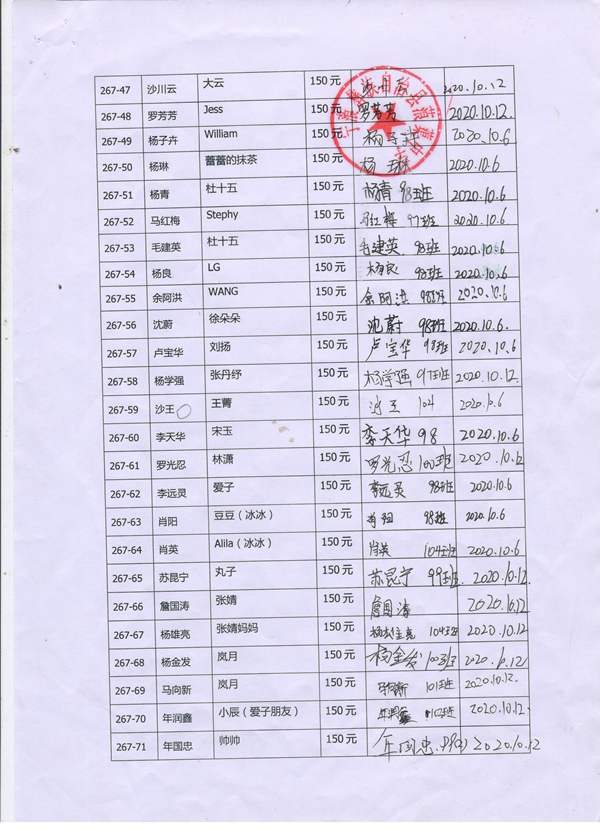 267-47 沙川云 大云 150元 沙川云 2020.10.12
267-48 罗芳芳 Jess 150元 罗芳芳 2020.10.12.
267-49 杨子卉 William 150元 杨子卉 2020.10.6
267-50 杨琳 蔷蔷的抹茶 150元 杨琳 2020.10.6
267-51 杨青 杜十五 150元 杨青 98班 2020.10.6
267-52 马红梅 Stephy 150元 马红梅 97班 2020.10.6
267-53 毛建英 杜十五 150元 毛建英 98班 2020.10.6
267-54 杨良 LG 150元 杨良 98班 2020.10.6
267-55 余阿洪 WANG 150元 余阿洪 98班 2020.10.6
267-56 沈蔚 徐朵朵 150元 沈蔚 98班 2020.10.6
267-57 卢宝华 刘扬 150元 卢宝华 98班 2020.10.6
267-58 杨学强 张丹纾 150元 杨学强 97班 2020.10.12
267-59 沙王 王菁 150元 沙王 104 2020.10.6
267-60 李天华 宋玉 150元 李天华 98 2020.10.6
267-61 罗光忍 林潇 150元 罗光忍 100班 2020.10.12
267-62 李远灵 爱子 150元 李远灵 98班 2020.10.6
267-63 肖阳 豆豆（冰冰） 150元 肖阳 98班 2020.10.6
267-64 肖英 Alila（冰冰） 150元 肖英 104班 2020.10.6
267-65 苏昆宁 丸子 150元 苏昆宁 99班 2020.10.12
267-66 詹国涛 张婧 150元 詹国涛 2020.10.12
267-67 杨雄亮 张婧妈妈 150元 杨雄亮 104班 2020.10.12
267-68 杨金发 岚月 150元 杨金发 100班 2020.10.12
267-69 马向新 岚月 150元 马向新 101班 2020.10.12.
267-70 年润鑫 小辰（爱子朋友） 150元 年润鑫 102班 2020.10.12
267-71 年国忠 帅帅 150元 年国忠 2020.10.12